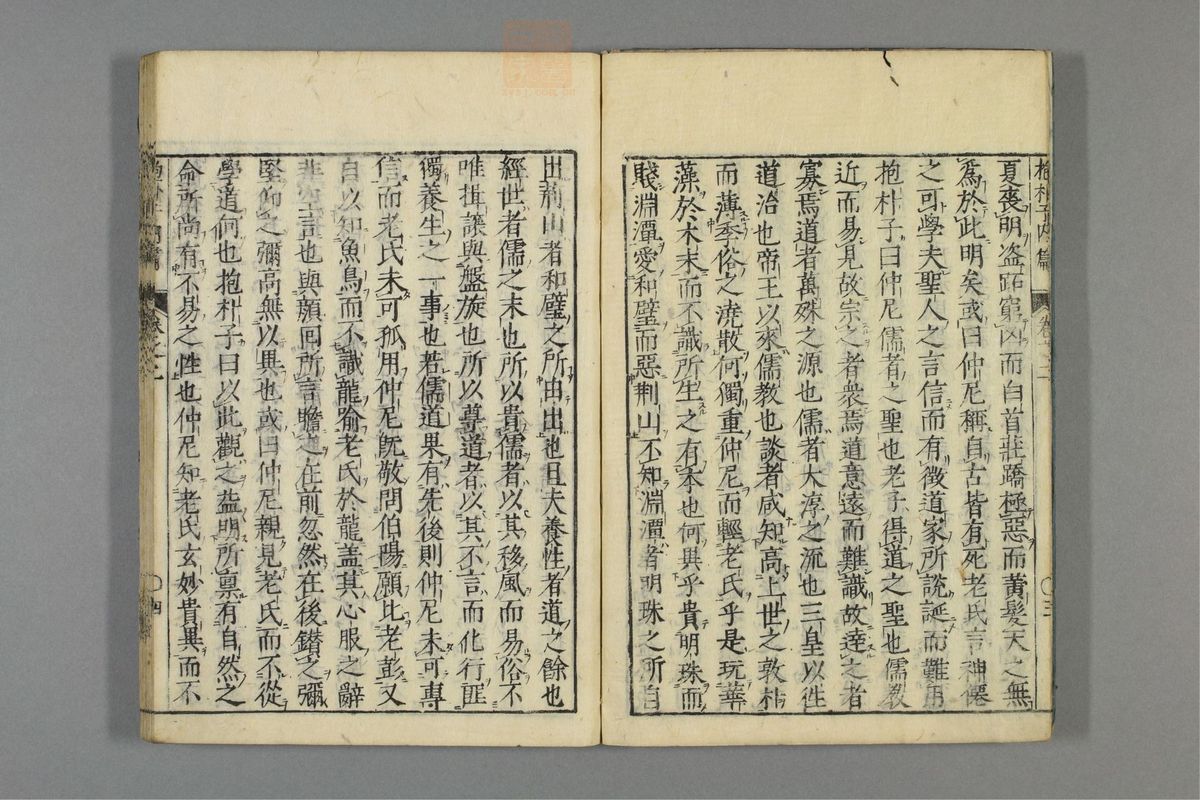 抱朴子內篇 卷之二 〇三
夏喪明盗跖窮凶而白首莊蹻極惡而黃髮天之無
爲於此明矣或曰仲尼稱自古皆有死老氏言神僊
之可學夫聖人之言信而有徵道家所說誕而難用
抱朴子曰仲尼儒者之聖也老子得道之聖也儒教
近而易見故宗之者衆焉道意遠而難識故達之者
寡焉道者萬殊之源也儒者大淳之流也三皇以徃
道治也帝王以來儒教也談者咸知高上世之敦朴
而薄季俗之澆散何獨重仲尼而輕老氏乎是玩華
藻於木末而不識所生之有本也何異乎貴明珠而
賤淵潭愛和璧而惡荆山不知淵潭者明珠之所自
出荊山者和璧之所由出也且夫養性者道之餘也
經世者儒之末也所以貴儒者以其移風而易俗不
唯揖讓與盤旋也所以尊道者以其不言而化行匪
獨養生之一事也若儒道果有先後則仲尼未可專
信而老氏未可孤用仲尼旣敬問伯陽願比老彭又
自以知魚鳥而不識龍喻老氏於龍盖其心服之辭
非空言也與顔回所言瞻之在前忽然在後鑚之彌
堅仰之彌高無以異也或曰仲尼親見老氏而不從
學道何也抱朴子曰以此觀之益明所禀有自然之
命所尚有不易之性也仲尼知老氏玄妙貴異而不
抱朴子內篇 卷之二 〇四